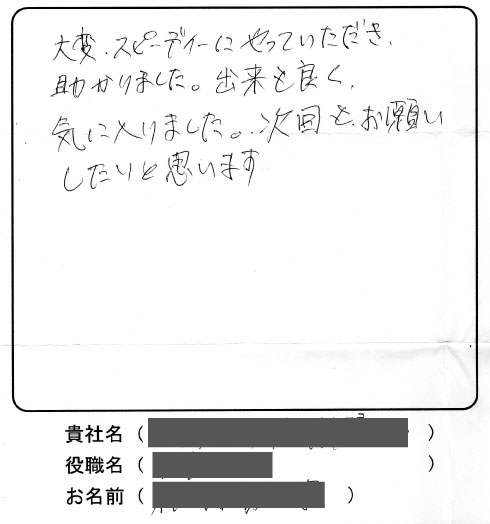 大変、スピーディーにやっていただき、
助かりました。出来も良く、
気に入りました。次回も、お願い
したいと思います
貴社名（ ）
役職名（ ）
お名前（ ）